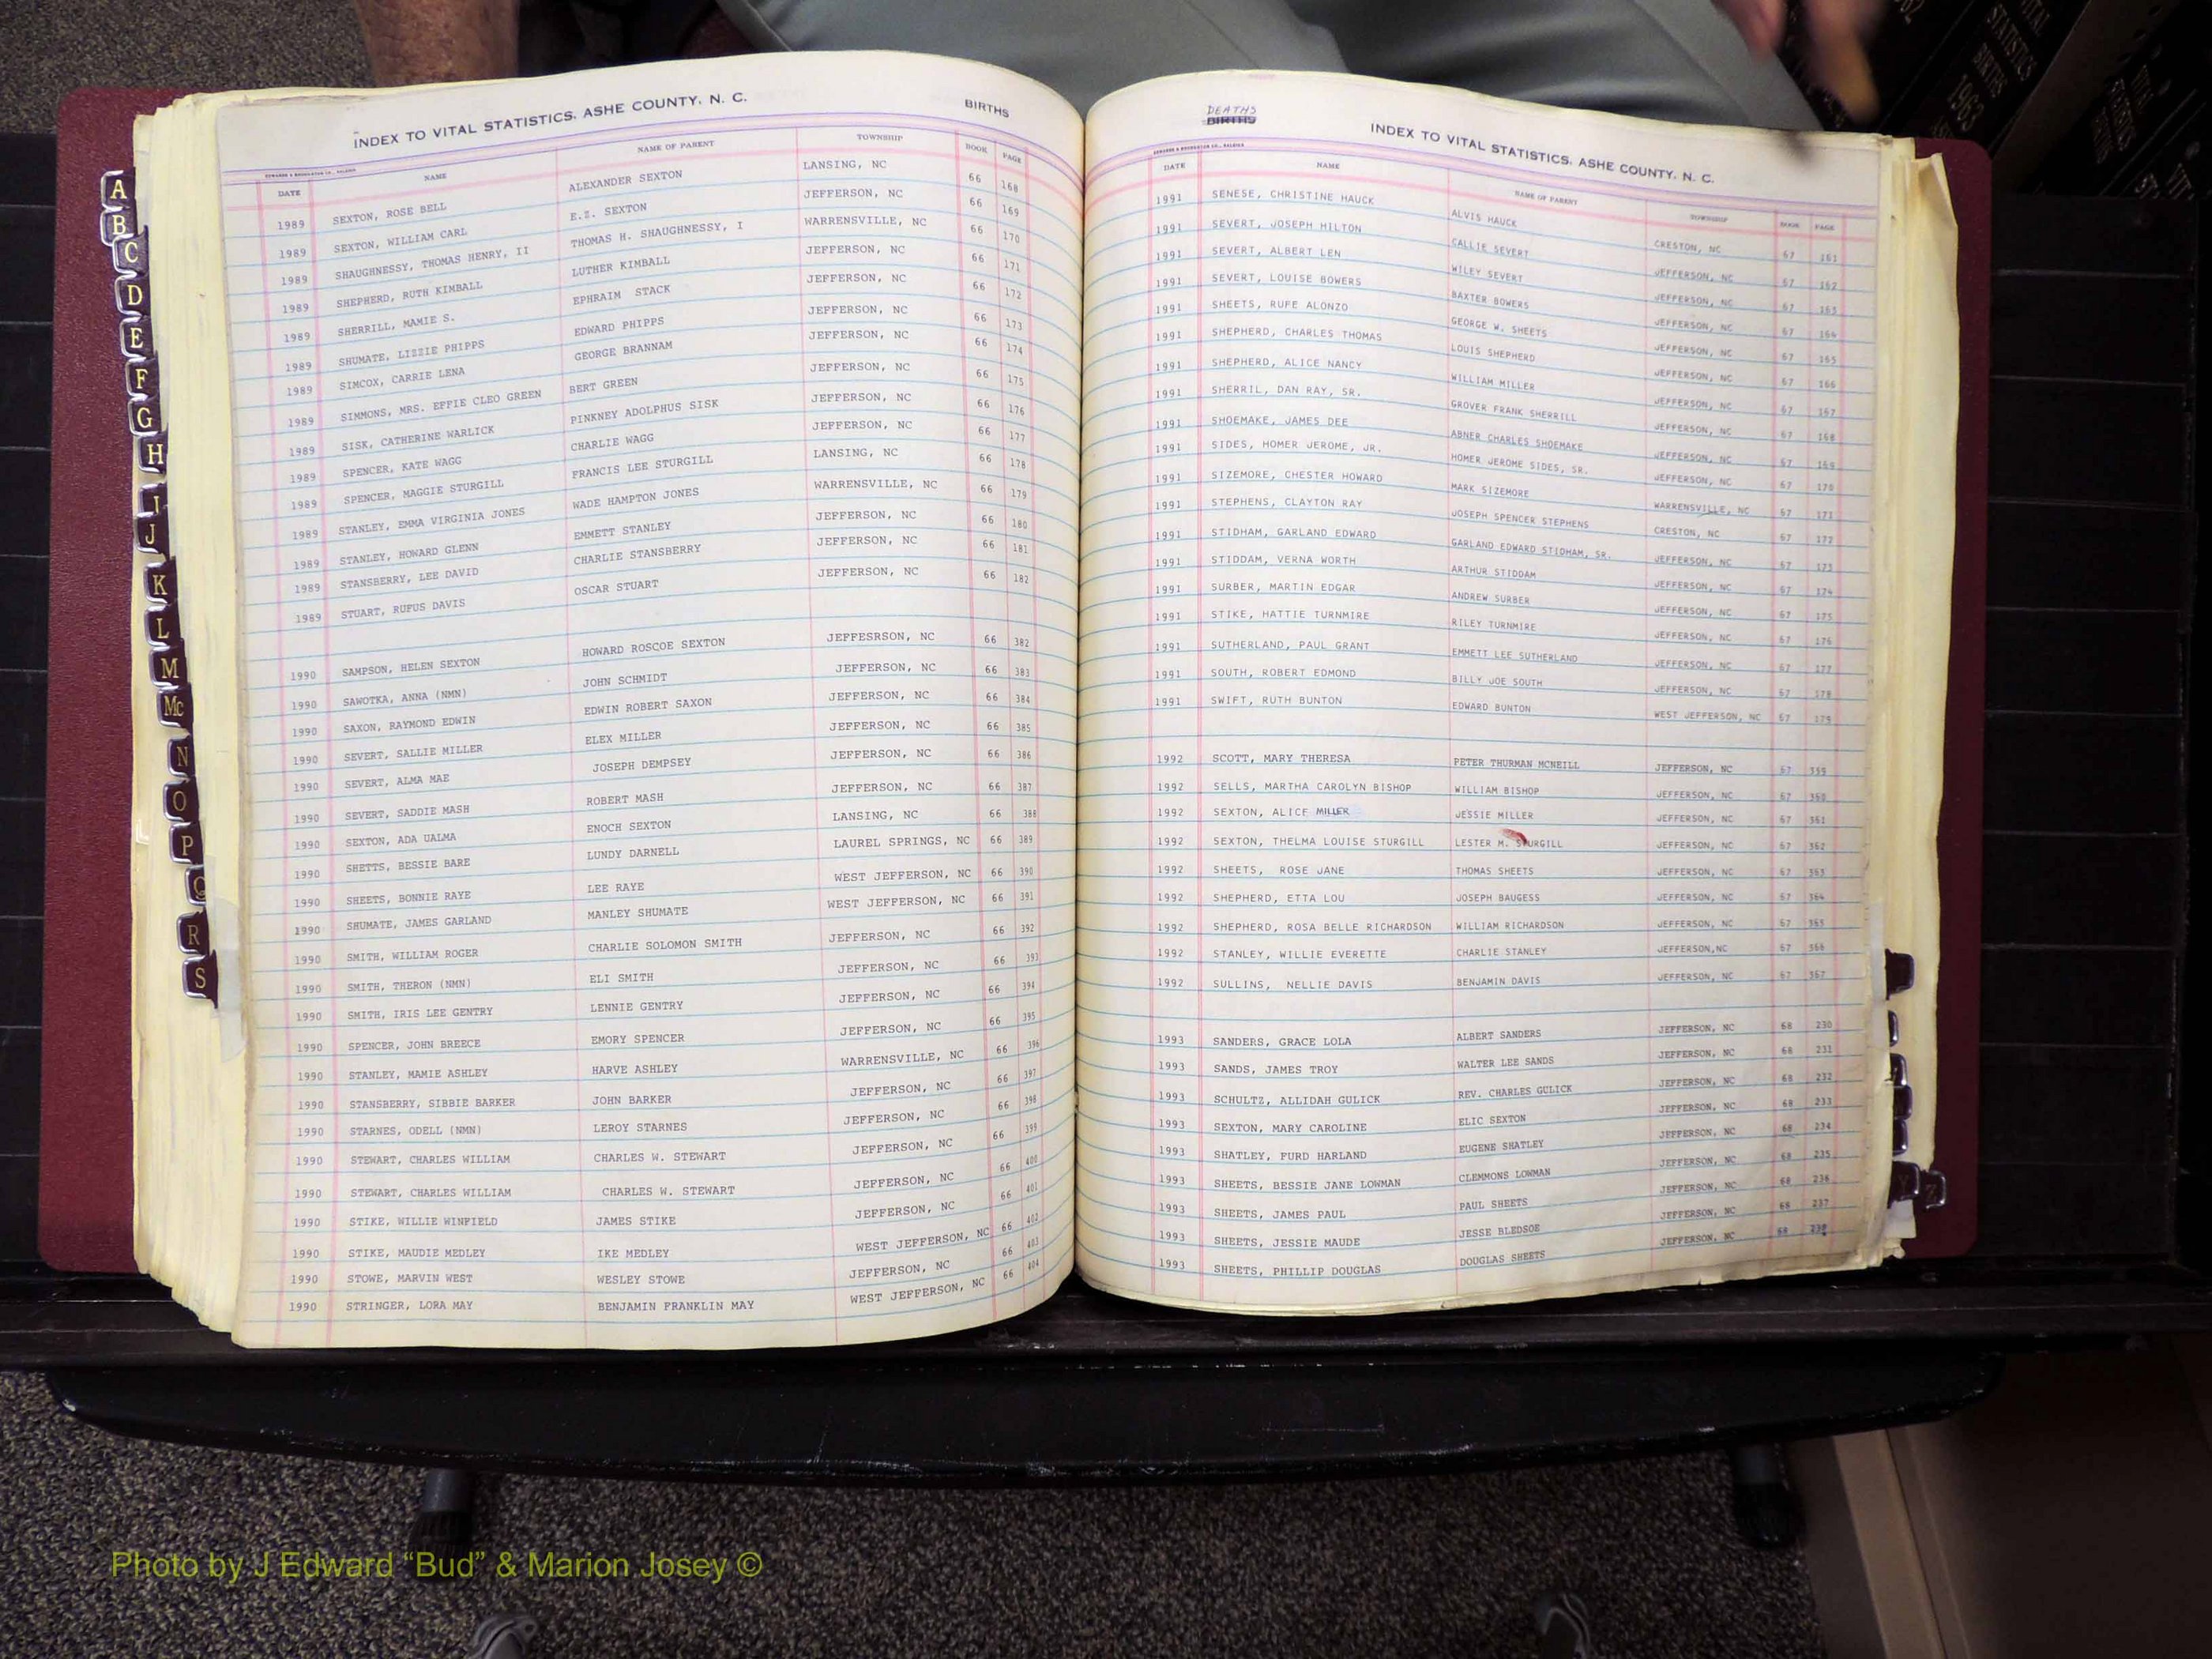 INDEX TO VITAL STATISTICS, ASHE COUNTY, N. C. BIRTHS
EDWARDS & BROUGHTON CO., RALEIGH
DATE NAME NAME OF PARENT TOWNSHIP BOOK PAGE
1989 SEXTON, ROSE BELL ALEXANDER SEXTON LANSING, NC 66 168
1989 SEXTON, WILLIAM CARL E.Z. SEXTON JEFFERSON, NC 66 169
1989 SHAUGHNESSY, THOMAS HENRY, II THOMAS H. SHAUGHNESSY, I WARRENSVILLE, NC 66 170
1989 SHEPHERD, RUTH KIMBALL LUTHER KIMBALL JEFFERSON, NC 66 171
1989 SHERRILL, MAMIE S. EPHRAIM STACK JEFFERSON, NC 66 172
1989 SHUMATE, LIZZIE PHIPPS EDWARD PHIPPS JEFFERSON, NC 66 173
1989 SIMCOX, CARRIE LENA GEORGE BRANNAM JEFFERSON, NC 66 174
1989 SIMMONS, MRS. EFFIE CLEO GREEN BERT GREEN JEFFERSON, NC 66 175
1989 SISK, CATHERINE WARLICK PINKNEY ADOLPHUS SISK JEFFERSON, NC 66 176
1989 SPENCER, KATE WAGG CHARLIE WAGG JEFFERSON, NC 66 177
1989 SPENCER, MAGGIE STURGILL FRANCIS LEE STURGILL LANSING, NC 66 178
1989 STANLEY, EMMA VIRGINIA JONES WADE HAMPTON JONES WARRENSVILLE, NC 66 179
1989 STANLEY, HOWARD GLENN EMMETT STANLEY JEFFERSON, NC 66 180
1989 STANSBERRY, LEE DAVID CHARLIE STANSBERRY JEFFERSON, NC 66 181
1989 STUART, RUFUS DAVIS OSCAR STUART JEFFERSON, NC 66 182
1990 SAMPSON, HELEN SEXTON HOWARD ROSCOE SEXTON JEFFESRSON, NC 66 382
1990 SAWOTKA, ANNA (NMN) JOHN SCHMIDT JEFFERSON, NC 66 383
1990 SAXON, RAYMOND EDWIN EDWIN ROBERT SAXON JEFFERSON, NC 66 384
1990 SEVERT, SALLIE MILLER ELEX MILLER JEFFERSON, NC 66 385
1990 SEVERT, ALMA MAE JOSEPH DEMPSEY JEFFERSON, NC 66 386
1990 SEVERT, SADDIE MASH ROBERT MASH JEFFERSON, NC 66 387
1990 SEXTON, ADA UALMA ENOCH SEXTON LANSING, NC 66 388
1990 SHETTS, BESSIE BARE LUNDY DARNELL LAUREL SPRINGS, NC 66 389
1990 SHEETS, BONNIE RAYE LEE RAYE WEST JEFFERSON, NC 66 390
1990 SHUMATE, JAMES GARLAND MANLEY SHUMATE WEST JEFFERSON, NC 66 391
1990 SMITH, WILLIAM ROGER CHARLIE SOLOMON SMITH JEFFERSON, NC 66 392
1990 SMITH, THERON (NMN) ELI SMITH JEFFERSON, NC 66 393
1990 SMITH, IRIS LEE GENTRY LENNIE GENTRY JEFFERSON, NC 66 394
1990 SPENCER, JOHN BREECE EMORY SPENCER JEFFERSON, NC 66 395
1990 STANLEY, MAMIE ASHLEY HARVE ASHLEY WARRENSVILLE, NC 66 396
1990 STANSBERRY, SIBBIE BARKER JOHN BARKER JEFFERSON, NC 66 397
1990 STARNES, ODELL (NMN) LEROY STARNES JEFFERSON, NC 66 398
1990 STEWART, CHARLES WILLIAM CHARLES W. STEWART JEFFERSON, NC 66 399
1990 STEWART, CHARLES WILLIAM CHARLES W. STEWART JEFFERSON, NC 66 400
1990 STIKE, WILLIE WINFIELD JAMES STIKE JEFFERSON, NC 66 401
1990 STIKE, MAUDIE MEDLEY IKE MEDLEY WEST JEFFERSON, NC 66 402
1990 STOWE, MARVIN WEST WESLEY STOWE JEFFERSON, NC 66 403
1990 STRINGER, LORA MAY BENJAMIN FRANKLIN MAY WEST JEFFERSON, NC 66 404
DEATHS
BIRTHS INDEX TO VITAL STATISTICS, ASHE COUNTY, N. C.
EDWARDS & BROUGHTON CO., RALEIGH
DATE NAME NAME OF PARENT TOWNSHIP BOOK PAGE
1991 SENESE, CHRISTINE HAUCK ALVIS HAUCK CRESTON, NC 67 161
1991 SEVERT, JOSEPH HILTON CALLIE SEVERT JEFFERSON, NC 67 162
1991 SEVERT, ALBERT LEN WILEY SEVERT JEFFERSON, NC 67 163
1991 SEVERT, LOUISE BOWERS BAXTER BOWERS JEFFERSON, NC 67 164
1991 SHEETS, RUFE ALONZO GEORGE W. SHEETS JEFFERSON, NC 67 165
1991 SHEPHERD, CHARLES THOMAS LOUIS SHEPHERD JEFFERSON, NC 67 166
1991 SHEPHERD, ALICE NANCY WILLIAM MILLER JEFFERSON, NC 67 167
1991 SHERRIL, DAN RAY, SR. GROVER FRANK SHERRILL JEFFERSON, NC 67 168
1991 SHOEMAKE, JAMES DEE ABNER CHARLES SHOEMAKE JEFFERSON, NC 67 169
1991 SIDES, HOMER JEROME, JR. HOMER JEROME SIDES, SR. JEFFERSON, NC 67 170
1991 SIZEMORE, CHESTER HOWARD MARK SIZEMORE WARRENSVILLE, NC 67 171
1991 STEPHENS, CLAYTON RAY JOSEPH SPENCER STEPHENS CRESTON, NC 67 172
1991 STIDHAM, GARLAND EDWARD GARLAND EDWARD STIDHAM, SR. JEFFERSON, NC 67 173
1991 STIDDAM, VERNA WORTH ARTHUR STIDDAM JEFFERSON, NC 67 174
1991 SURBER, MARTIN EDGAR ANDREW SURBER JEFFERSON, NC 67 175
1991 STIKE, HATTIE TURNMIRE RILEY TURNMIRE JEFFERSON, NC 67 176
1991 SUTHERLAND, PAUL GRANT EMMETT LEE SUTHERLAND JEFFERSON, NC 67 177
1991 SOUTH, ROBERT EDMOND BILLY JOE SOUTH JEFFERSON, NC 67 178
1991 SWIFT, RUTH BUNTON EDWARD BUNTON WEST JEFFERSON, NC 67 179
1992 SCOTT, MARY THERESA PETER THURMAN MCNEILL JEFFERSON, NC 67 359
1992 SELLS, MARTHA CAROLYN BISHOP WILLIAM BISHOP JEFFERSON, NC 67 360
1992 SEXTON, ALICE MILLER JESSIE MILLER JEFFERSON, NC 67 361
1992 SEXTON, THELMA LOUISE STURGILL LESTER M. STURGILL JEFFERSON, NC 67 362
1992 SHEETS, ROSE JANE THOMAS SHEETS JEFFERSON, NC 67 363
1992 SHEPHERD, ETTA LOU JOSEPH BAUGESS JEFFERSON, NC 67 364
1992 SHEPHERD, ROSA BELLE RICHARDSON WILLIAM RICHARDSON JEFFERSON, NC 67 365
1992 STANLEY, WILLIE EVERETTE CHARLIE STANLEY JEFFERSON,NC 67 366
1992 SULLINS, NELLIE DAVIS BENJAMIN DAVIS JEFFERSON, NC 67 367
1993 SANDERS, GRACE LOLA ALBERT SANDERS JEFFERSON, NC 68 230
1993 SANDS, JAMES TROY WALTER LEE SANDS JEFFERSON, NC 68 231
1993 SCHULTZ, ALLIDAH GULICK REV. CHARLES GULICK JEFFERSON, NC 68 232
1993 SEXTON, MARY CAROLINE ELIC SEXTON JEFFERSON, NC 68 233
1993 SHATLEY, FURD HARLAND EUGENE SHATLEY JEFFERSON, NC 68 234
1993 SHEETS, BESSIE JANE LOWMAN CLEMMONS LOWMAN JEFFERSON, NC 68 235
1993 SHEETS, JAMES PAUL PAUL SHEETS JEFFERSON, NC 68 236
1993 SHEETS, JESSIE MAUDE JESSE BLEDSOE JEFFERSON, NC 68 237
1993 SHEETS, PHILLIP DOUGLAS DOUGLAS SHEETS JEFFERSON, NC 68 238
A
B
C
D
E
F
G
H
I
J
K
L
M
Mc
N
O
P
Q
R
S
Y
Z
VITAL
STATISTICS
BIRTHS
1963
Photo by J Edward “Bud” & Marion Josey ©